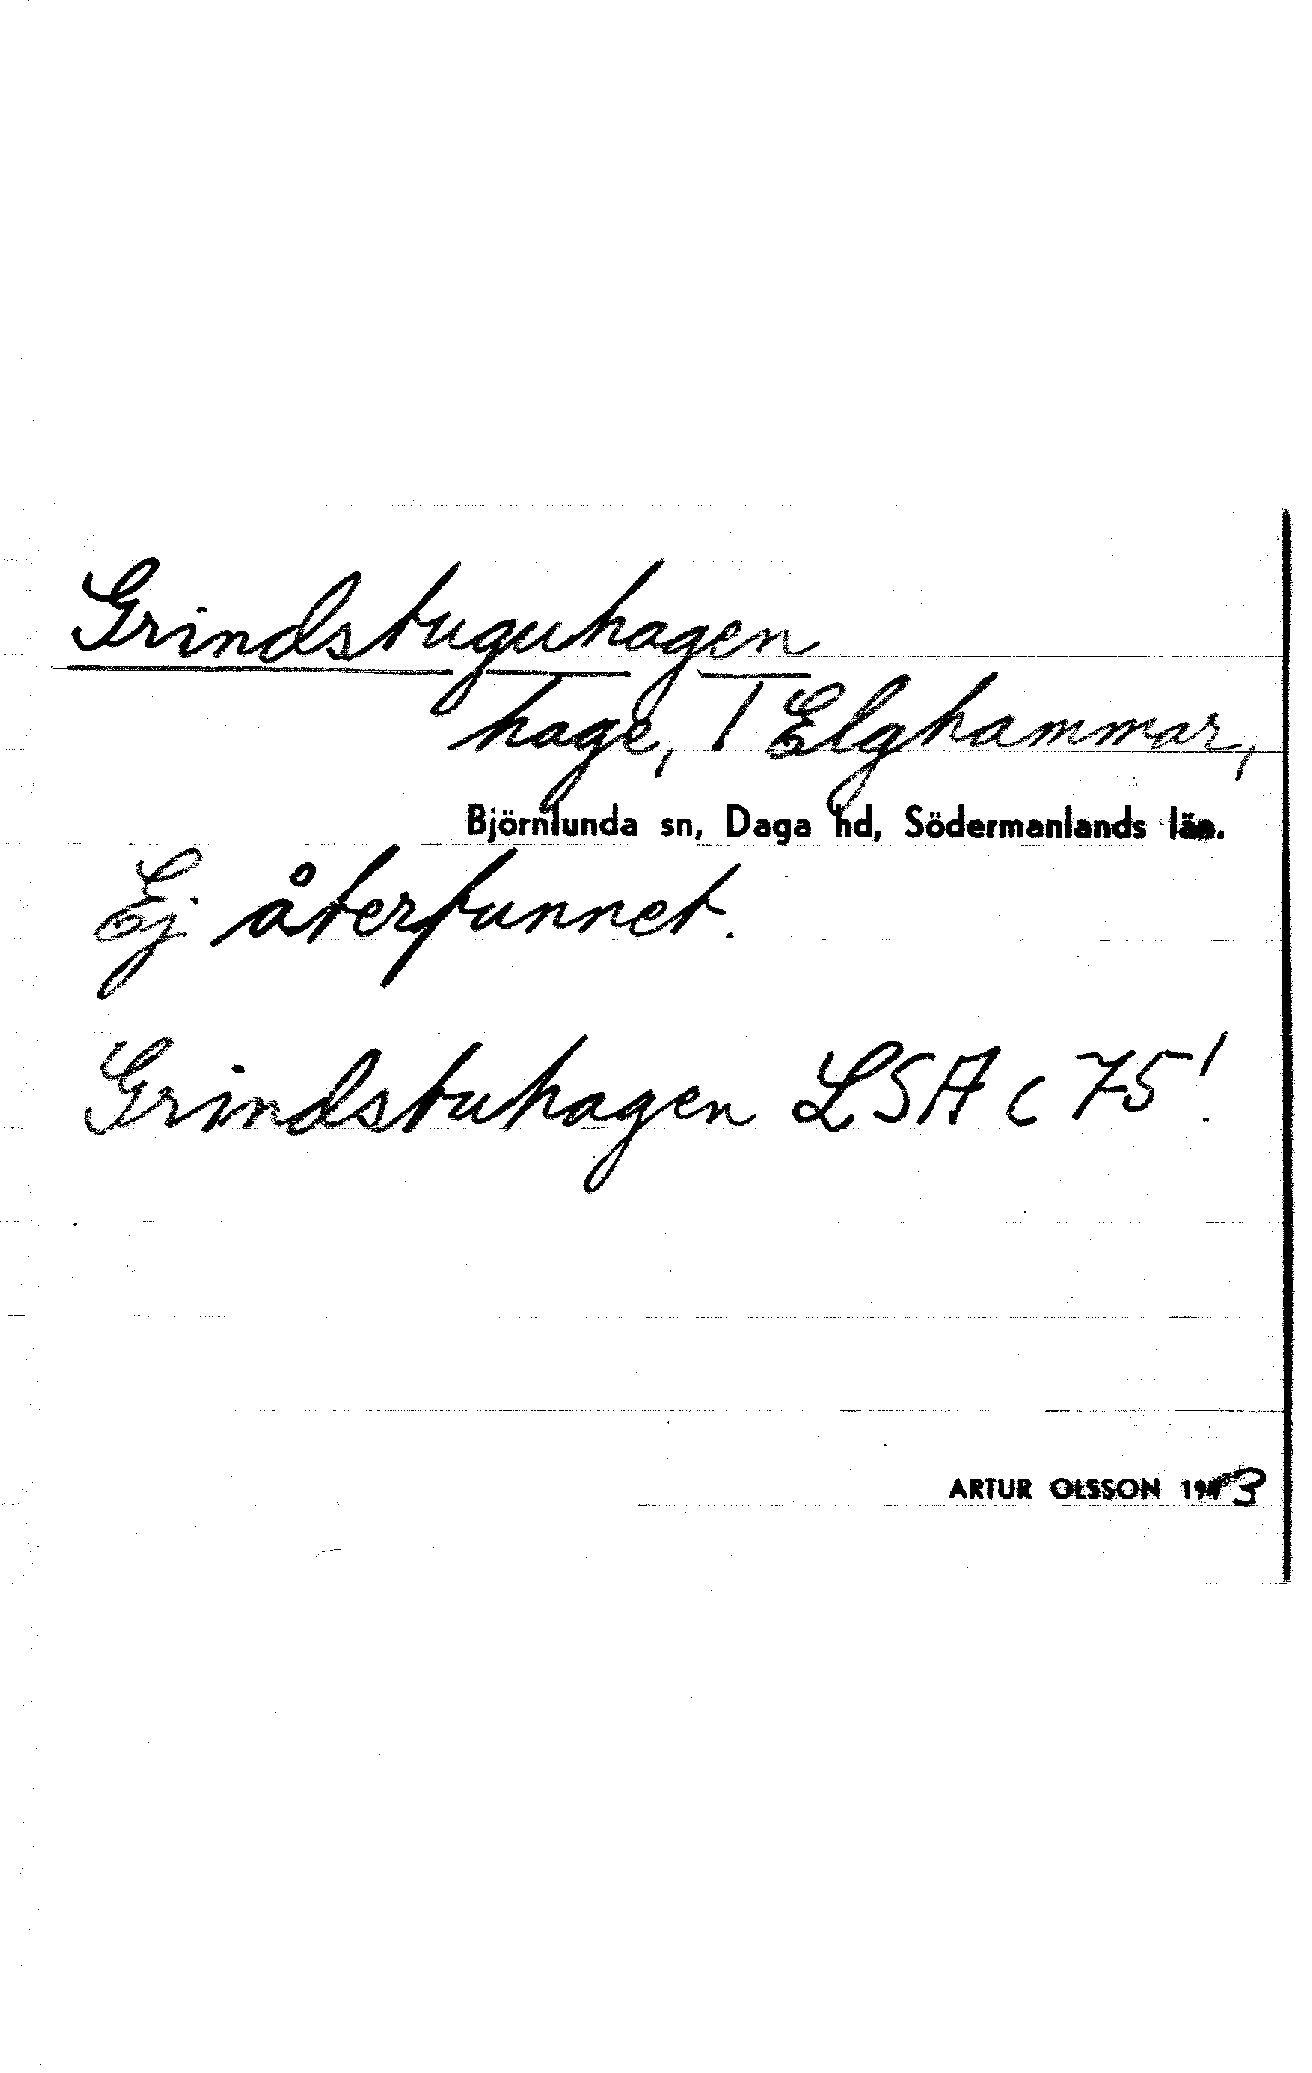 Grindstuguhagen
hage, 1 Elghammar,
Björnlunda sn, Daga hd, Södermanlands län.
Ej återfunnet.
Grindstuhagen LSA c 75!
ARTUR OLSSON